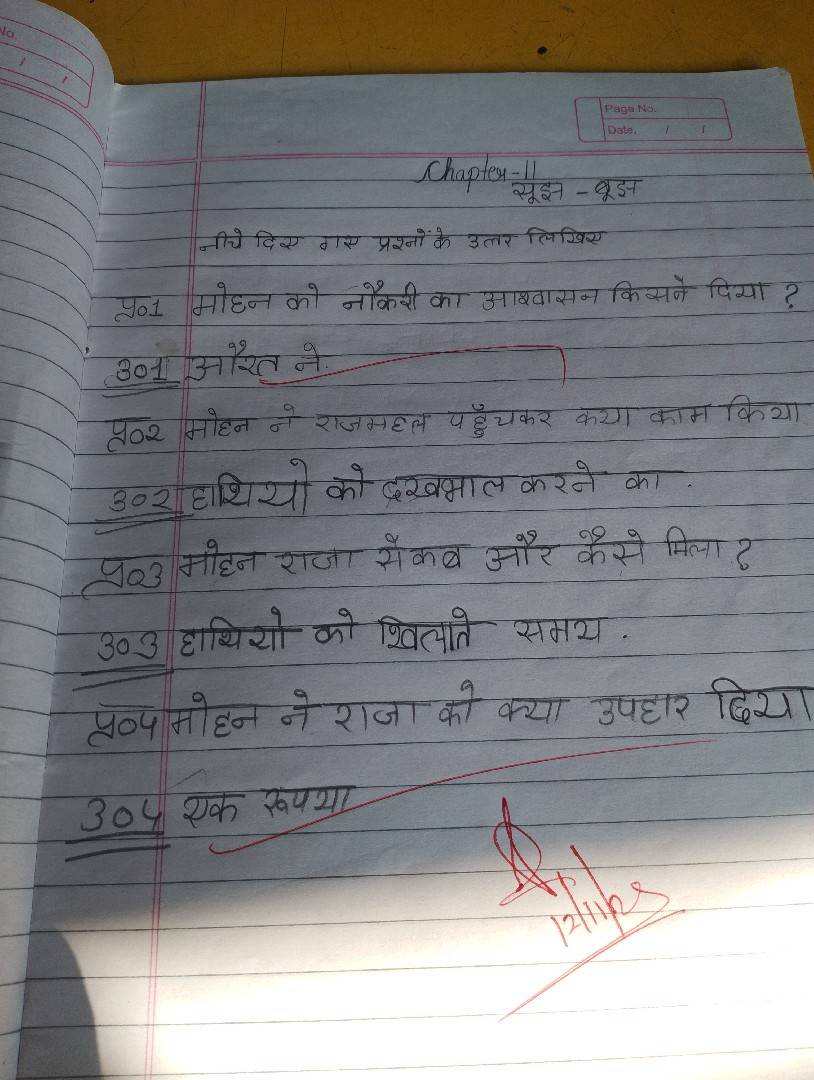 No.
/ /
Page No.
Date. / /
Chapter-11
सूझ - बूझ
नीचे दिए गए प्रश्नों के उत्तर लिखिए
प्र01 मोहन को नौकरी का आश्वासन किसने दिया ?
उ01 औरत ने.
प्र02 मोहन ने राजमहल पहुँचकर क्या काम किया
उ02 हाथियो को देखभाल करने का .
प्र03 मोहन राजा से कब और कैसे मिला ?
उ03 हाथियो को खिलाते समय .
प्र04 मोहन ने राजा को क्या उपहार दिया
उ04 एक रूपया
12/11/25